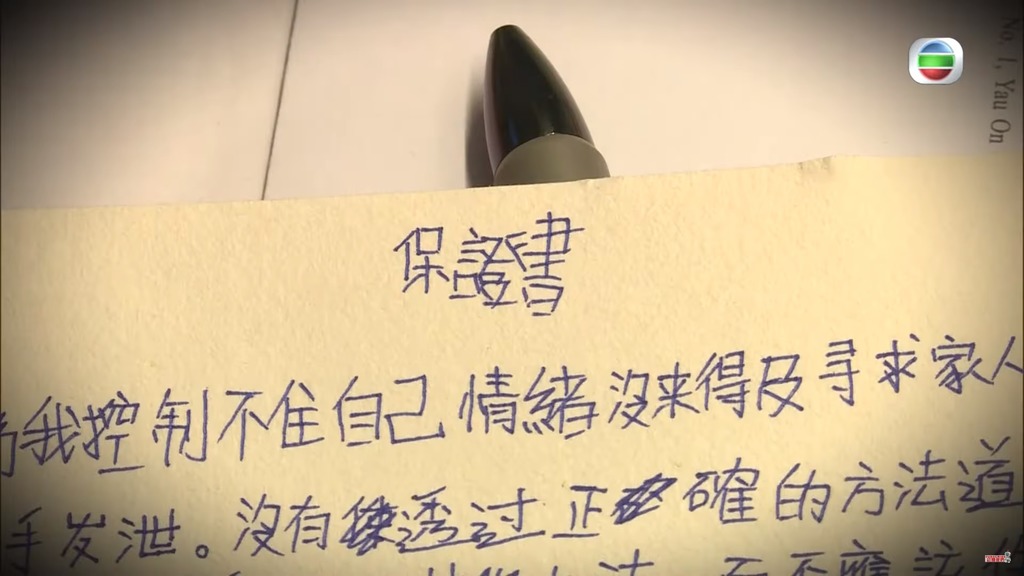 No. 1, Yau On
保證書
我控制不住自己情緒沒来得及寻求家人
手发泄。沒有透过正確的方法道